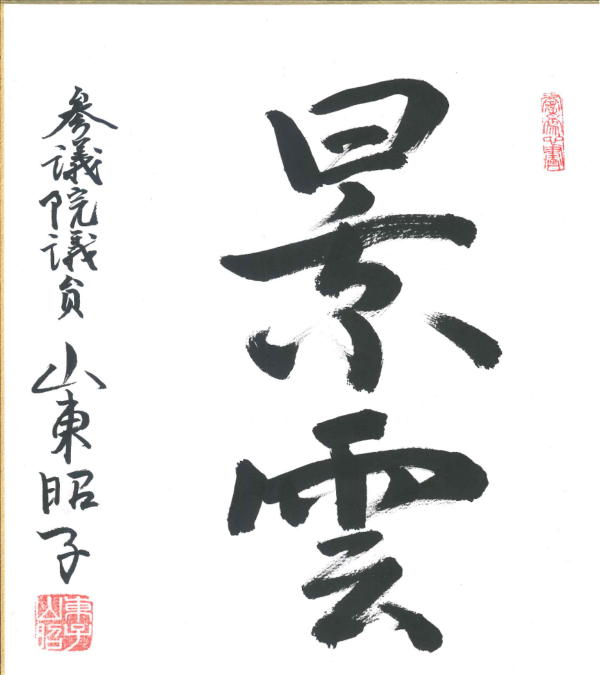 景雲
参議院議員 山東昭子